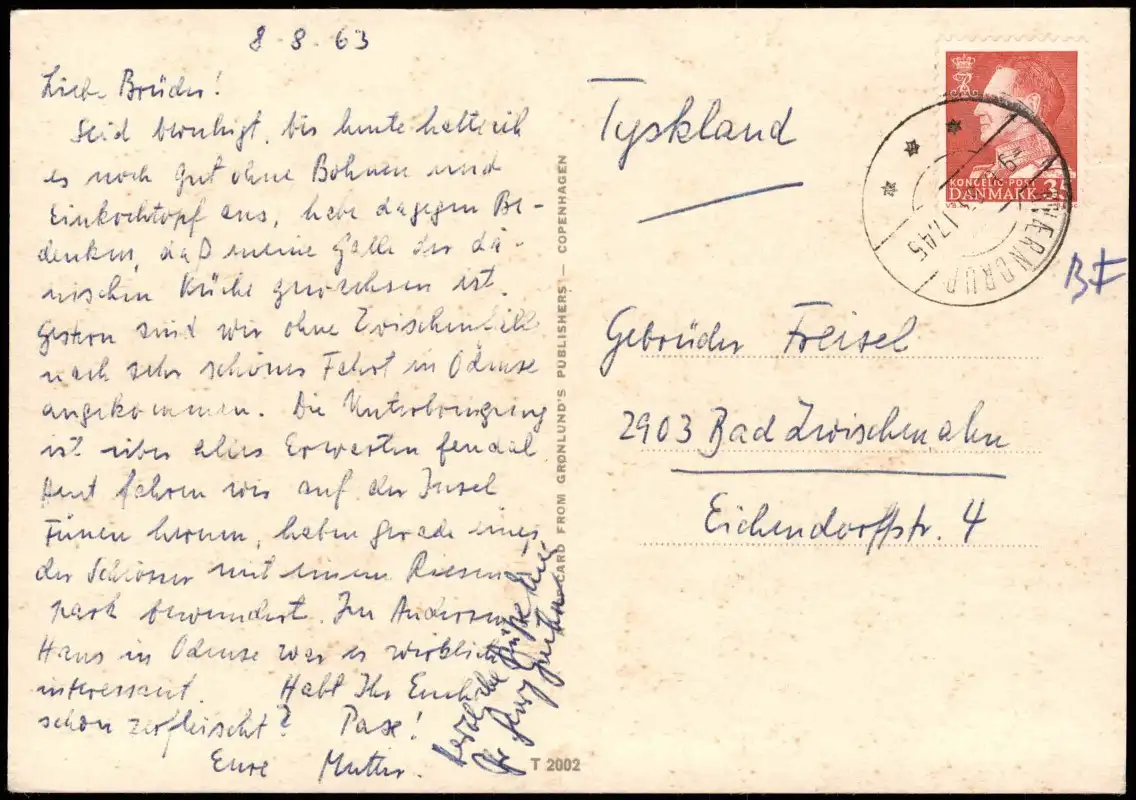 8-8-63
Liebe Brüder!
Seid beruhigt, bis heute hatte ich
es noch gut ohne Bohnen und
Einkochtopf aus, habe dagegen Be-
denken, daß meine Galle der dä-
nischen Küche gewachsen ist.
Gestern sind wir ohne Zwischenfälle
nach sehr schöner Fahrt in Odense
angekommen. Die Unterbringung
ist über alles Erwarten feudal.
Heut fahren wir auf der Insel
Fünen herum, haben gerade eines
der Schlösser mit einem Riesen-
park bewundert. Im Andersen
Haus in Odense war es wirklich
interessant. Habt Ihr Euch
schon zerfleischt? Paxe!
Eure Mutter.
herzliche Grüße Euch
CARD FROM GRØNLUND'S PUBLISHERS — COPENHAGEN
T 2002
Tyskland
KONGELIG POST
DANMARK 35
17.45
BF
Gebrüder Freisel
2903 Bad Zwischenahn
Eichendorffstr. 4